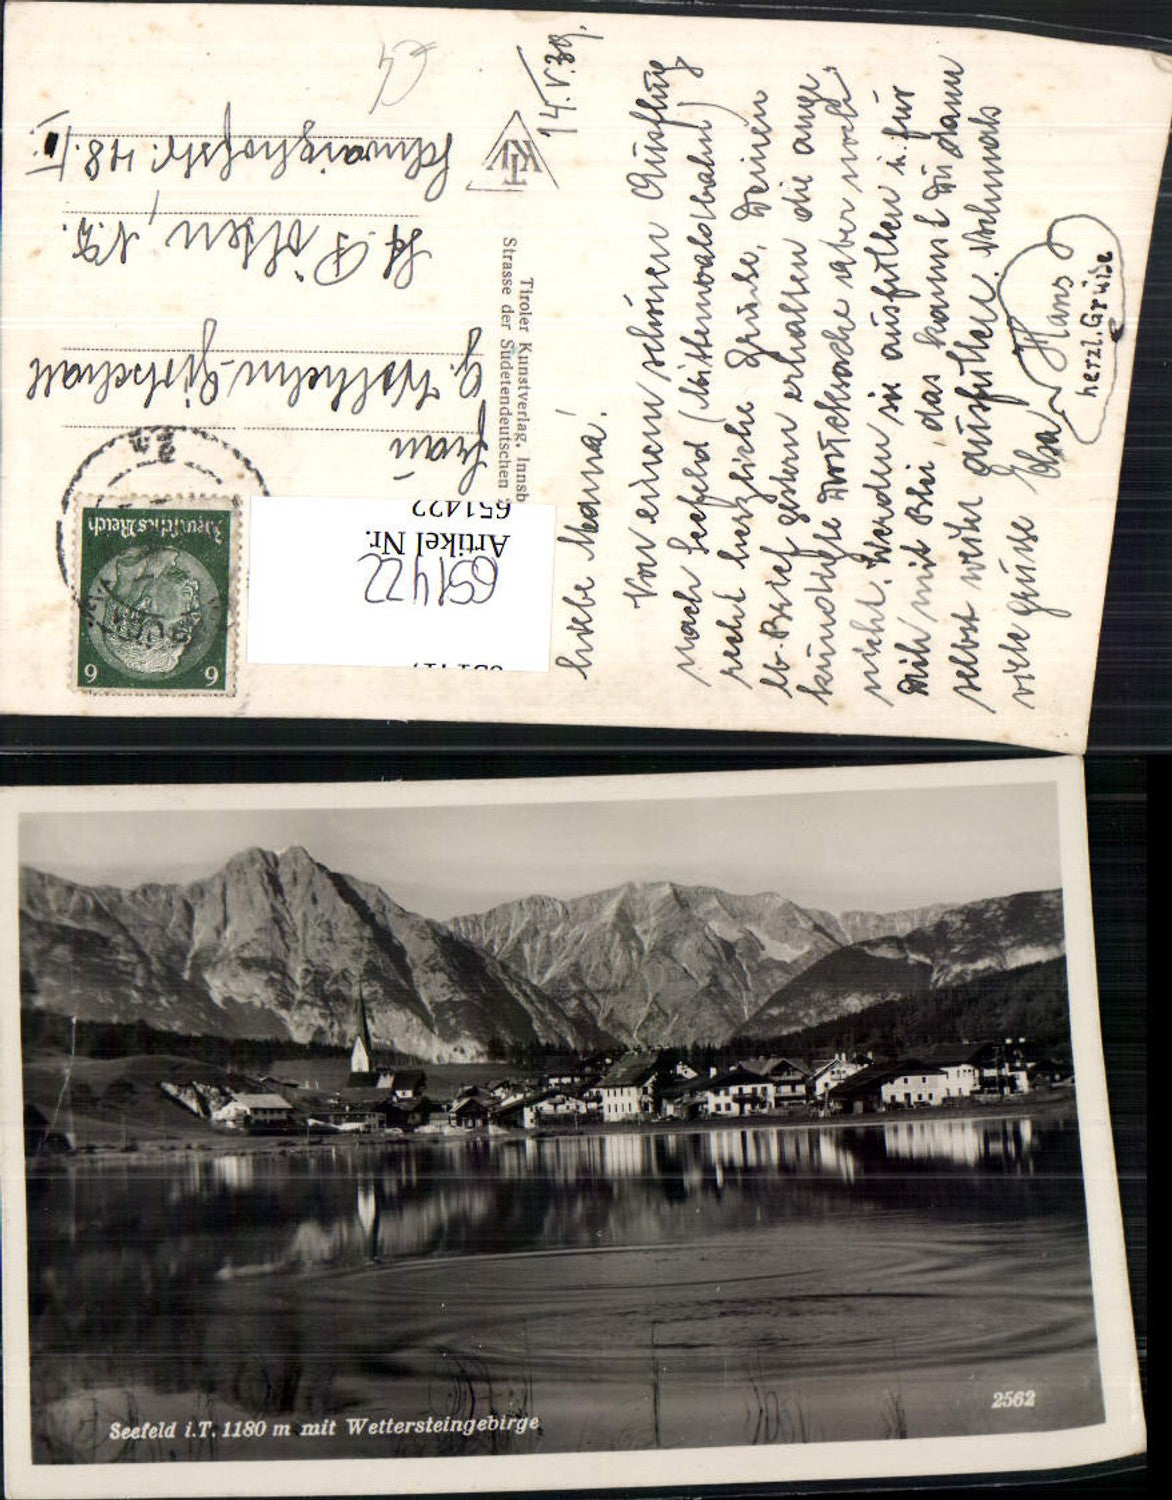 14.V.39.
Liebe Mama!
Von einem schönen Ausflug
nach Seefeld (Mittenwaldbahn)
recht herzliche Grüße. Deinen
lb. Brief gestern erhalten die ange-
kündigte Drucksache aber noch
nicht. Werden sie ausfüllen u. für
Dich mit Blei, das kannst Du dann
selbst weiter ausfüllen. Nochmals
viele Grüße Elsa
Hans
herzl. Grüße
TKI
Tiroler Kunstverlag, Innsb
Strasse der Sudetendeutschen
Frau
G. Wilhelm-
St. Pölten, N.D.
Schwaighofstr. 48.
Deutsches Reich
6 6
Artikel Nr.
651422
651422
Seefeld i.T. 1180 m mit Wettersteingebirge
2562